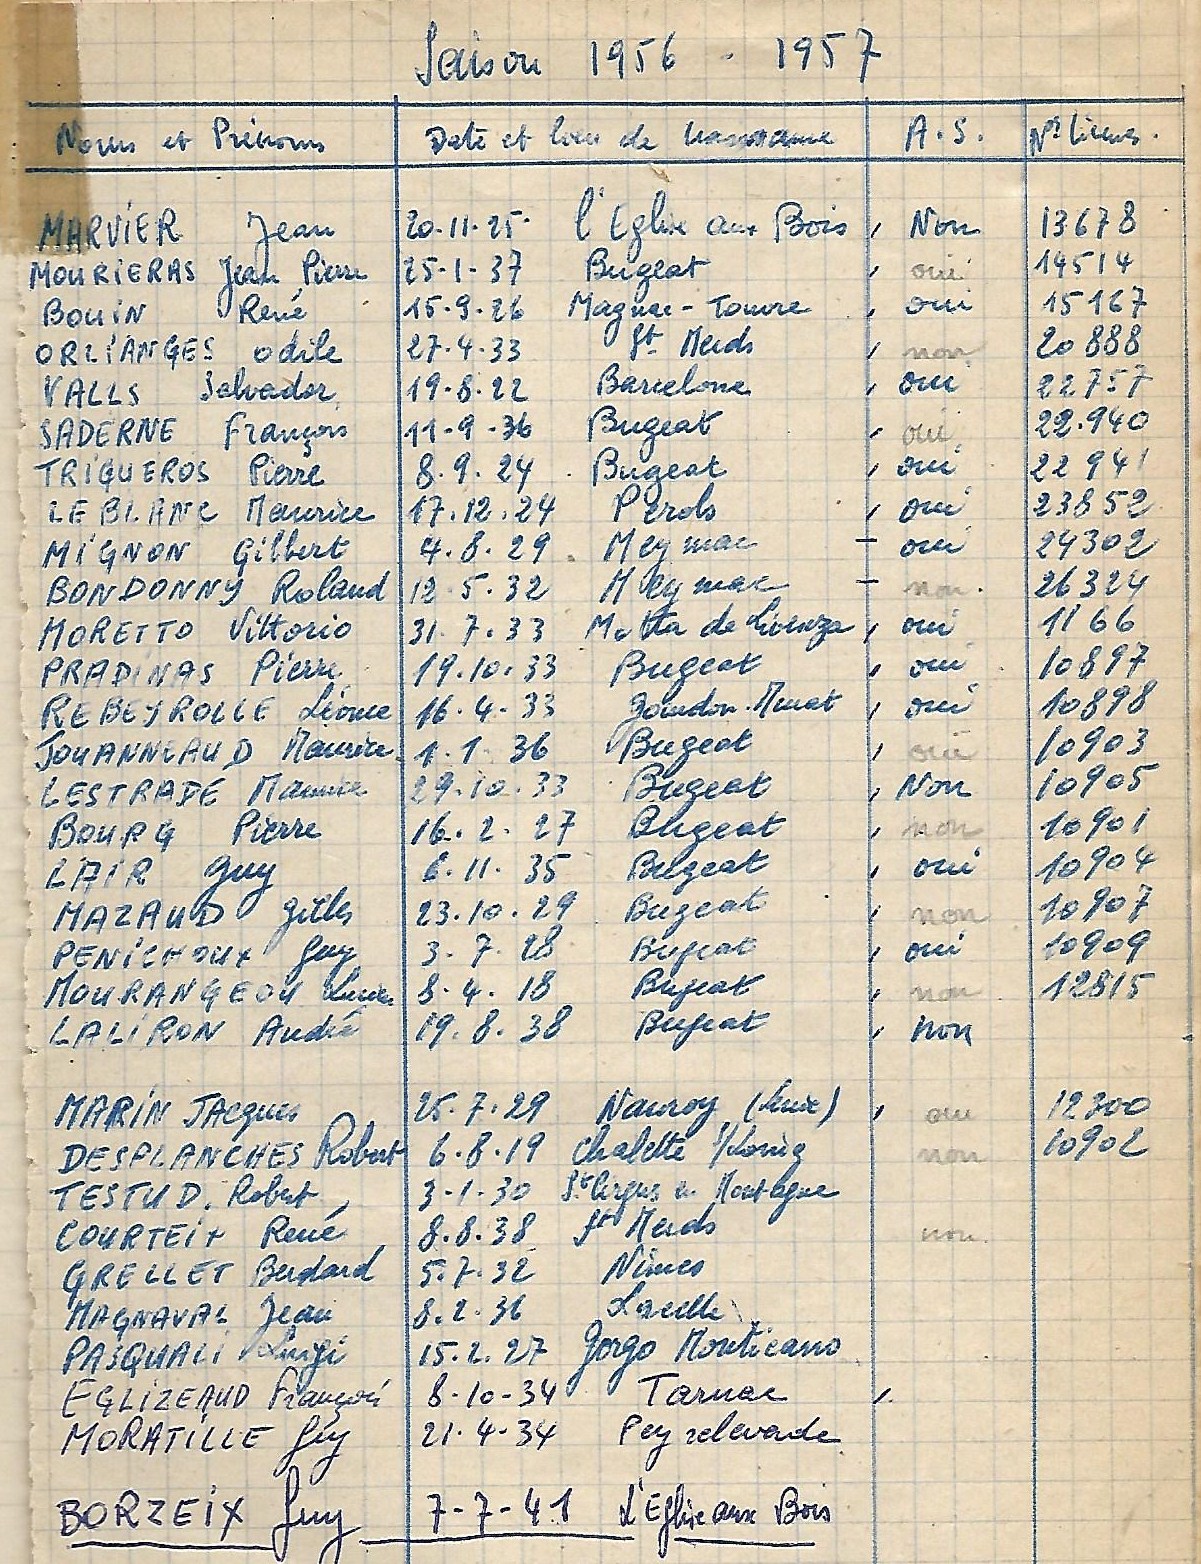 Saison 1956 - 1957
Noms et Prénoms Date et lieu de naissance A.S. N° Licences.
MARVIER Jean 20.11.25 l'Eglise aux Bois , Non 13678
MOURIERAS Jean Pierre 25.1.37 Bugeat , oui 14514
BOUIN René 15.9.26 Magnac-Touvre , oui 15167
ORLIANGES Odile 27.4.33 St Merds , non 20888
VALLS Salvador 19.8.22 Barcelone , oui 22757
SADERNE François 11.9.36 Bugeat , oui 22.940
TRIQUEROS Pierre 8.9.24 Bugeat , oui 22941
LEBLANC Maurice 17.12.24 Pérols , oui 23852
MIGNON Gilbert 4.8.29 Meymac - oui 24302
BONDONNY Roland 12.5.32 Meymac - non 26324
MORETTO Vittorio 31.7.33 Motta de Livenza , oui 1166
PRADINAS Pierre 19.10.33 Bugeat , oui 10897
REBEYROLLE Léonce 16.4.33 Gourdon-Murat , oui 10898
JOUANNEAUD Maurice 1.1.36 Bugeat , oui 10903
LESTRADE Maurice 29.10.33 Bugeat , Non 10905
BOURG Pierre 16.2.27 Bugeat , non 10901
LAIR Guy 6.11.35 Bugeat , oui 10904
MAZAUD Gilles 23.10.29 Bugeat , non 10907
PENICHOUX Guy 3.7.28 Bugeat , oui 10909
MOURANGEOU Lucien 8.4.18 Bugeat , non 12815
LALIRON André 19.8.38 Bugeat , non
MARIN JAcques 25.7.29 Nauroy , oui 12300
DESPLANCHES Robert 6.8.19 Chalette s/Loing non 10902
TESTUD. Robert 3.1.30 St Cirgues en Montagne
COURTEIX René 8.8.38 St Merds non
GRELLET Berdard 5.7.32 Nîmes
MAGNAVAL Jean 8.2.36 Lacelle
PASQUALI Luigi 15.2.27 Gorgo Monticano
EGLIZEAUD François 8-10-34 Tarnac ,
MORATILLE Guy 21.4-34 Peyrelevade
BORZEIX Guy 7-7-41 L'Eglise aux Bois